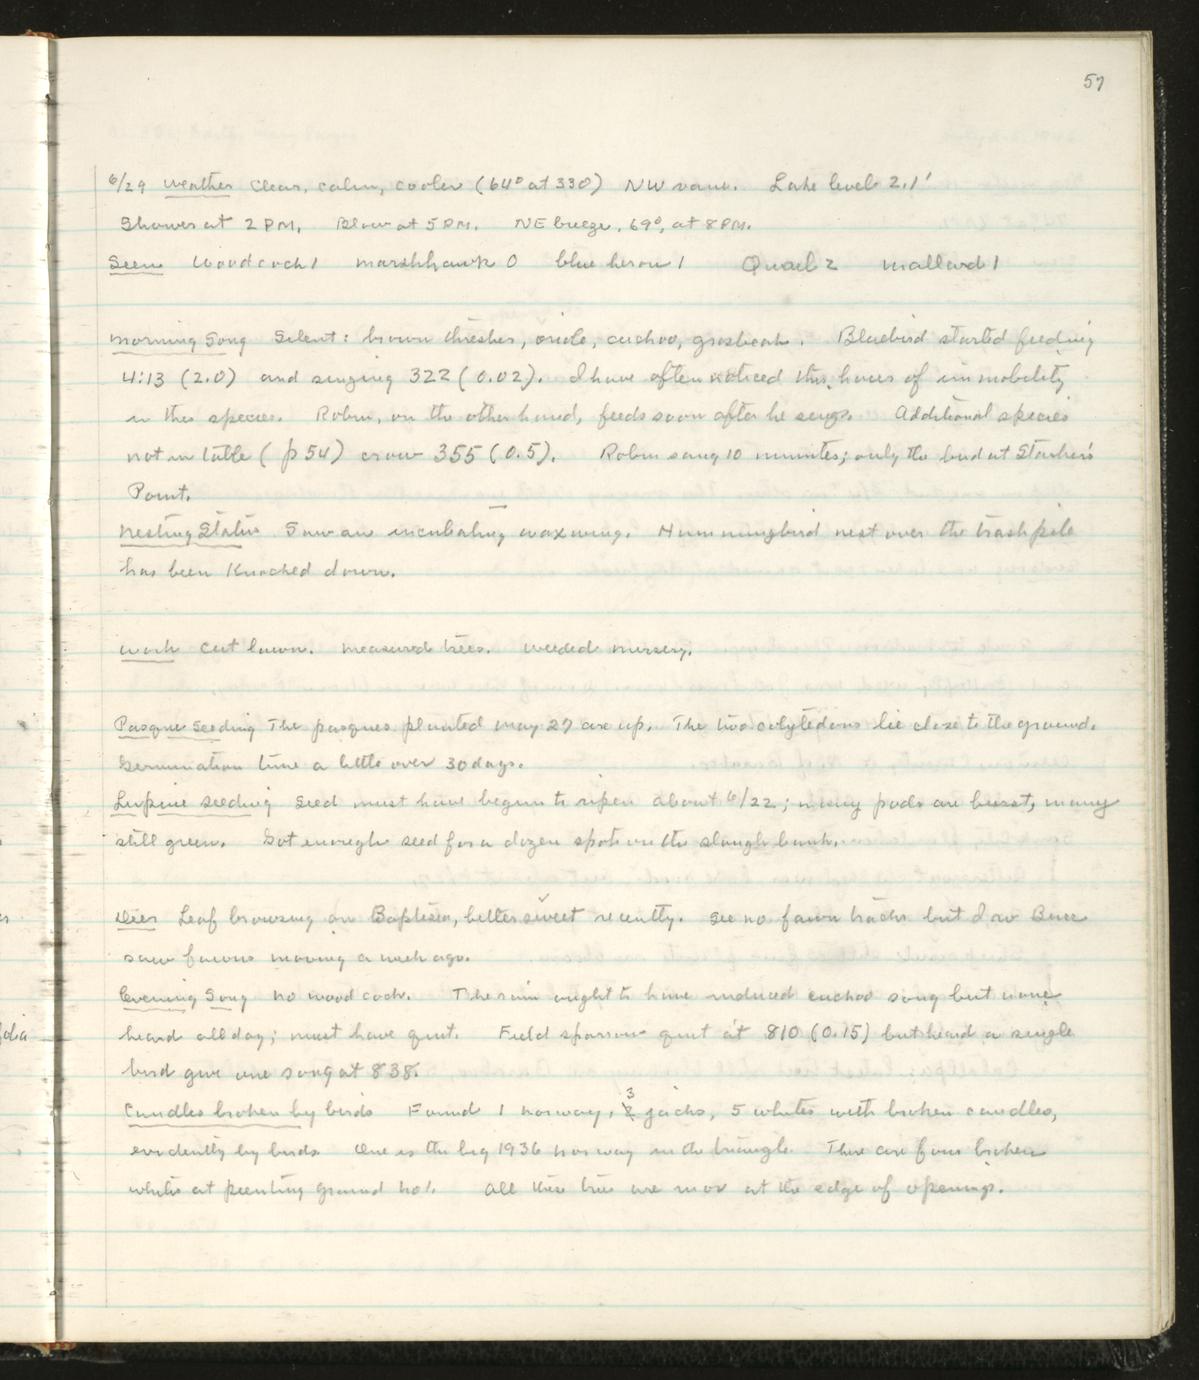 57
6/29 Weather Clear, calm, cooler (64° at 330) NW vane. Lake level 2.1'
Shower at 2 PM. Blow at 5 PM. NE breeze, 69°, at 8 PM.
Seen Woodcock 1 marshhawk 0 blue heron 1 Quail 2 mallard 1
Morning Song Silent: brown thrasher, oriole, cuckoo, grosbeak. Bluebird started feeding
4:13 (2.0) and singing 322 (0.02). I have often noticed this hours of immobility
in this species. Robin, on the other hand, feeds soon after he sings. Additional species
not in table (p 54) crow 355 (0.5). Robin sang 10 minutes; only the bird at
Point.
Nesting Status Saw an incubating waxwing. Hummingbird nest over the trash pile
has been knocked down.
Work Cut lawn. Measured trees. Weeded nursery.
Pasque Seeding The pasques planted May 27 are up. The two cotyledons lie close to the ground.
Germination time a little over 30 days.
Lupine Seeding Seed must have begun to ripen about 6/22; many pods are burst, many
still green. Got enough seed for a dozen spots on the slough bank.
Deer Leaf browsing on Baptisia, bittersweet recently. See no fawn tracks but
saw fawns moving a week ago.
Evening Song No woodcock. The rain ought to have induced cuckoo song but none
heard all day; must have quit. Field sparrow quit at 810 (0.15) but heard a single
bird give one song at 838.
Candles broken by birds Found 1 norway, 3 jacks, 5 whites with broken candles,
evidently by birds. One is the big 1936 norway in the triangle. There are four broken
whites at peenting ground No 1. All these trees are mov at the edge of openings.